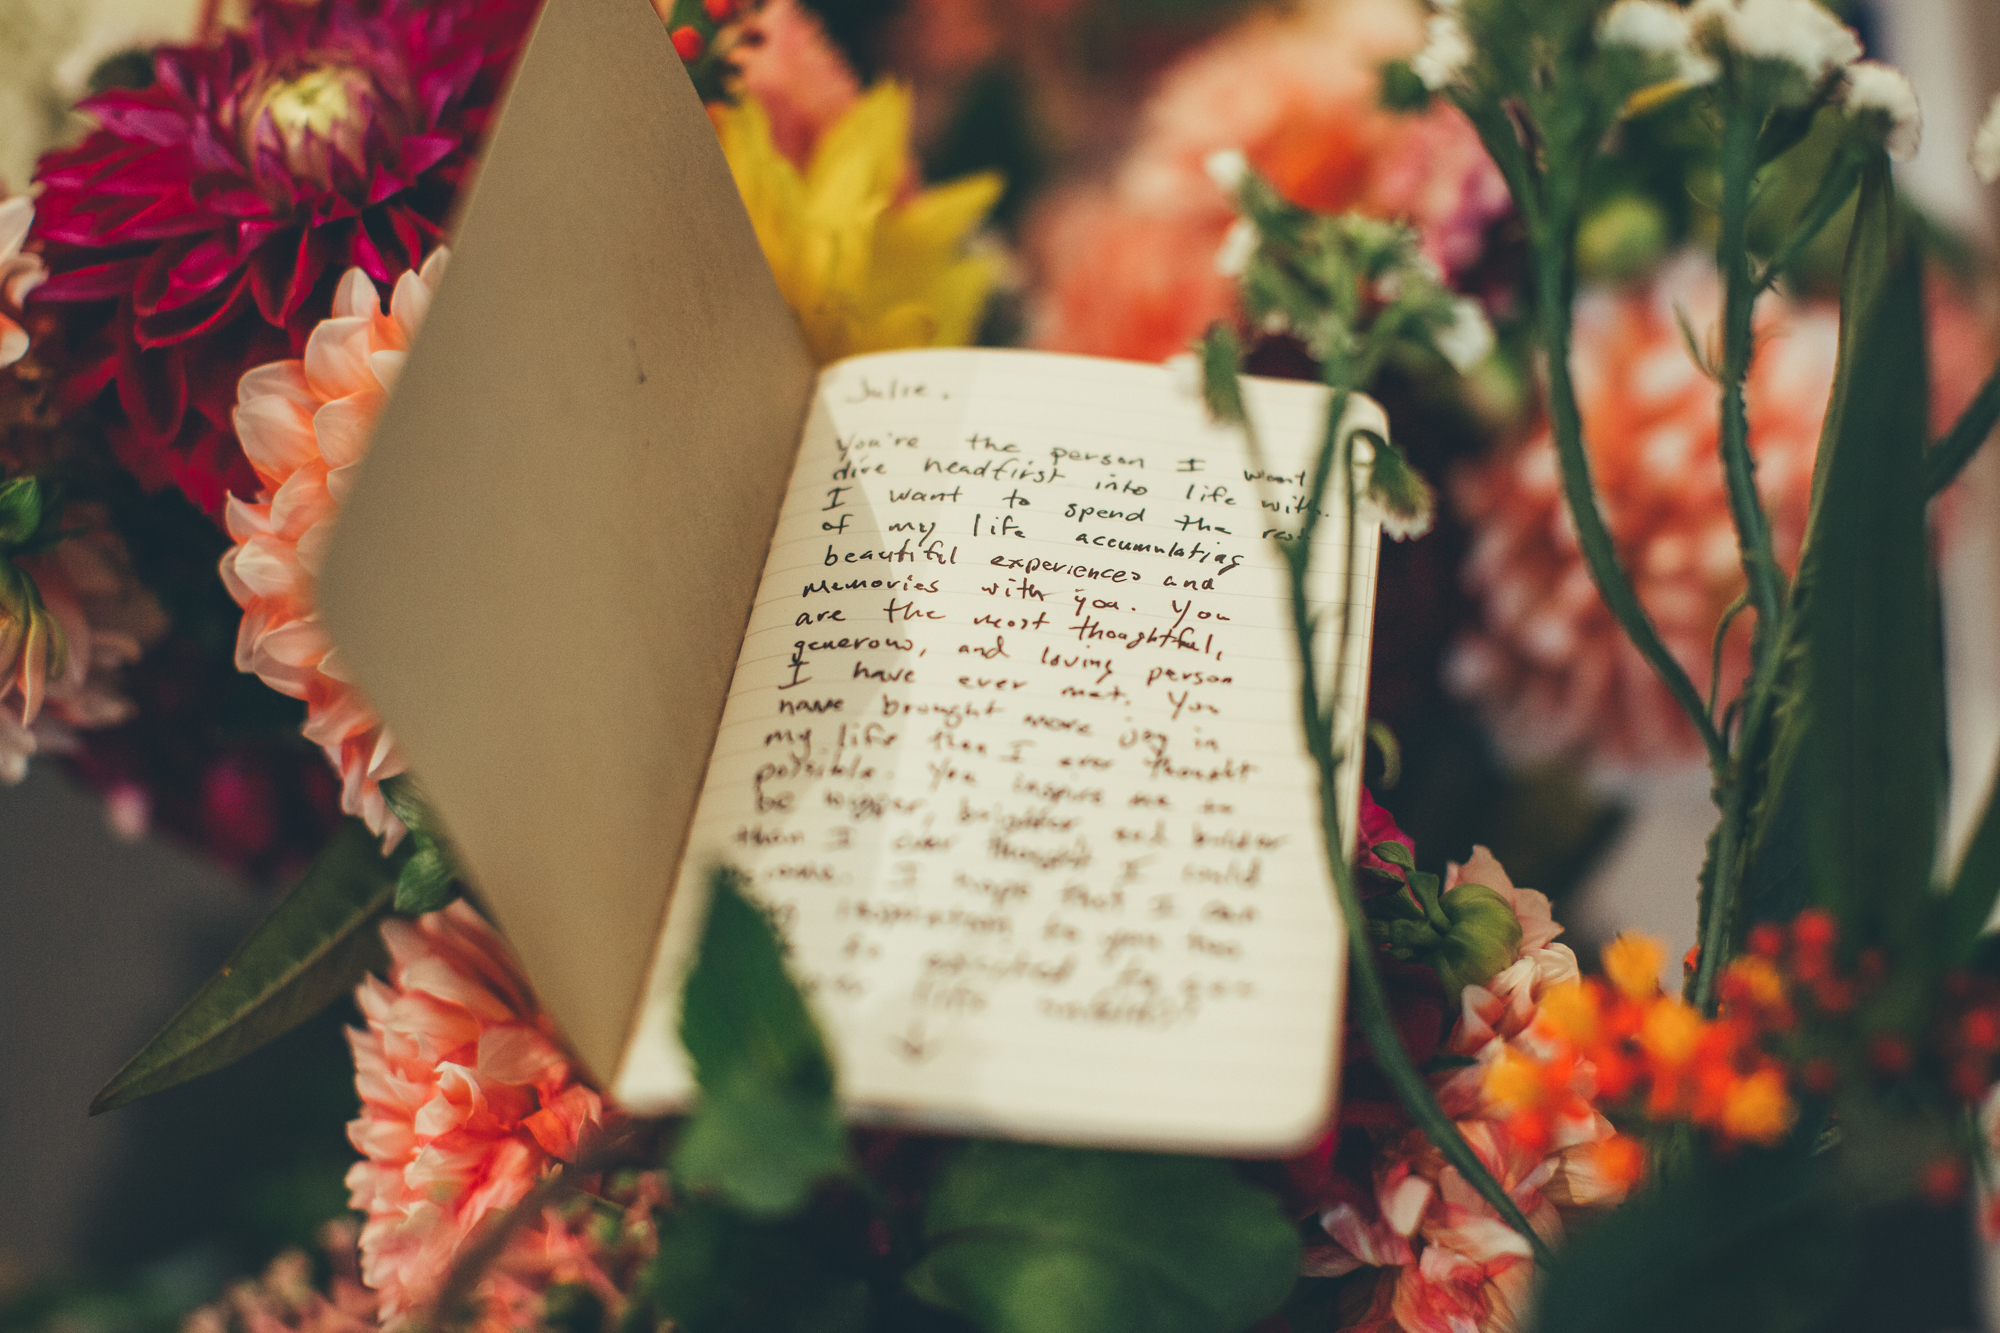 Julie.
You're the person I want
dive headfirst into life with.
I want to spend the rest
of my life accumulating
beautiful experiences and
memories with you. You
are the most thoughtful,
generous, and loving person
I have ever met. You
have brought more joy in
my life than I ever thought
possible. You inspire me to
be bigger, brighter, and bolder
than I ever thought I could
I hope that I can
inspiration to you too
to
life